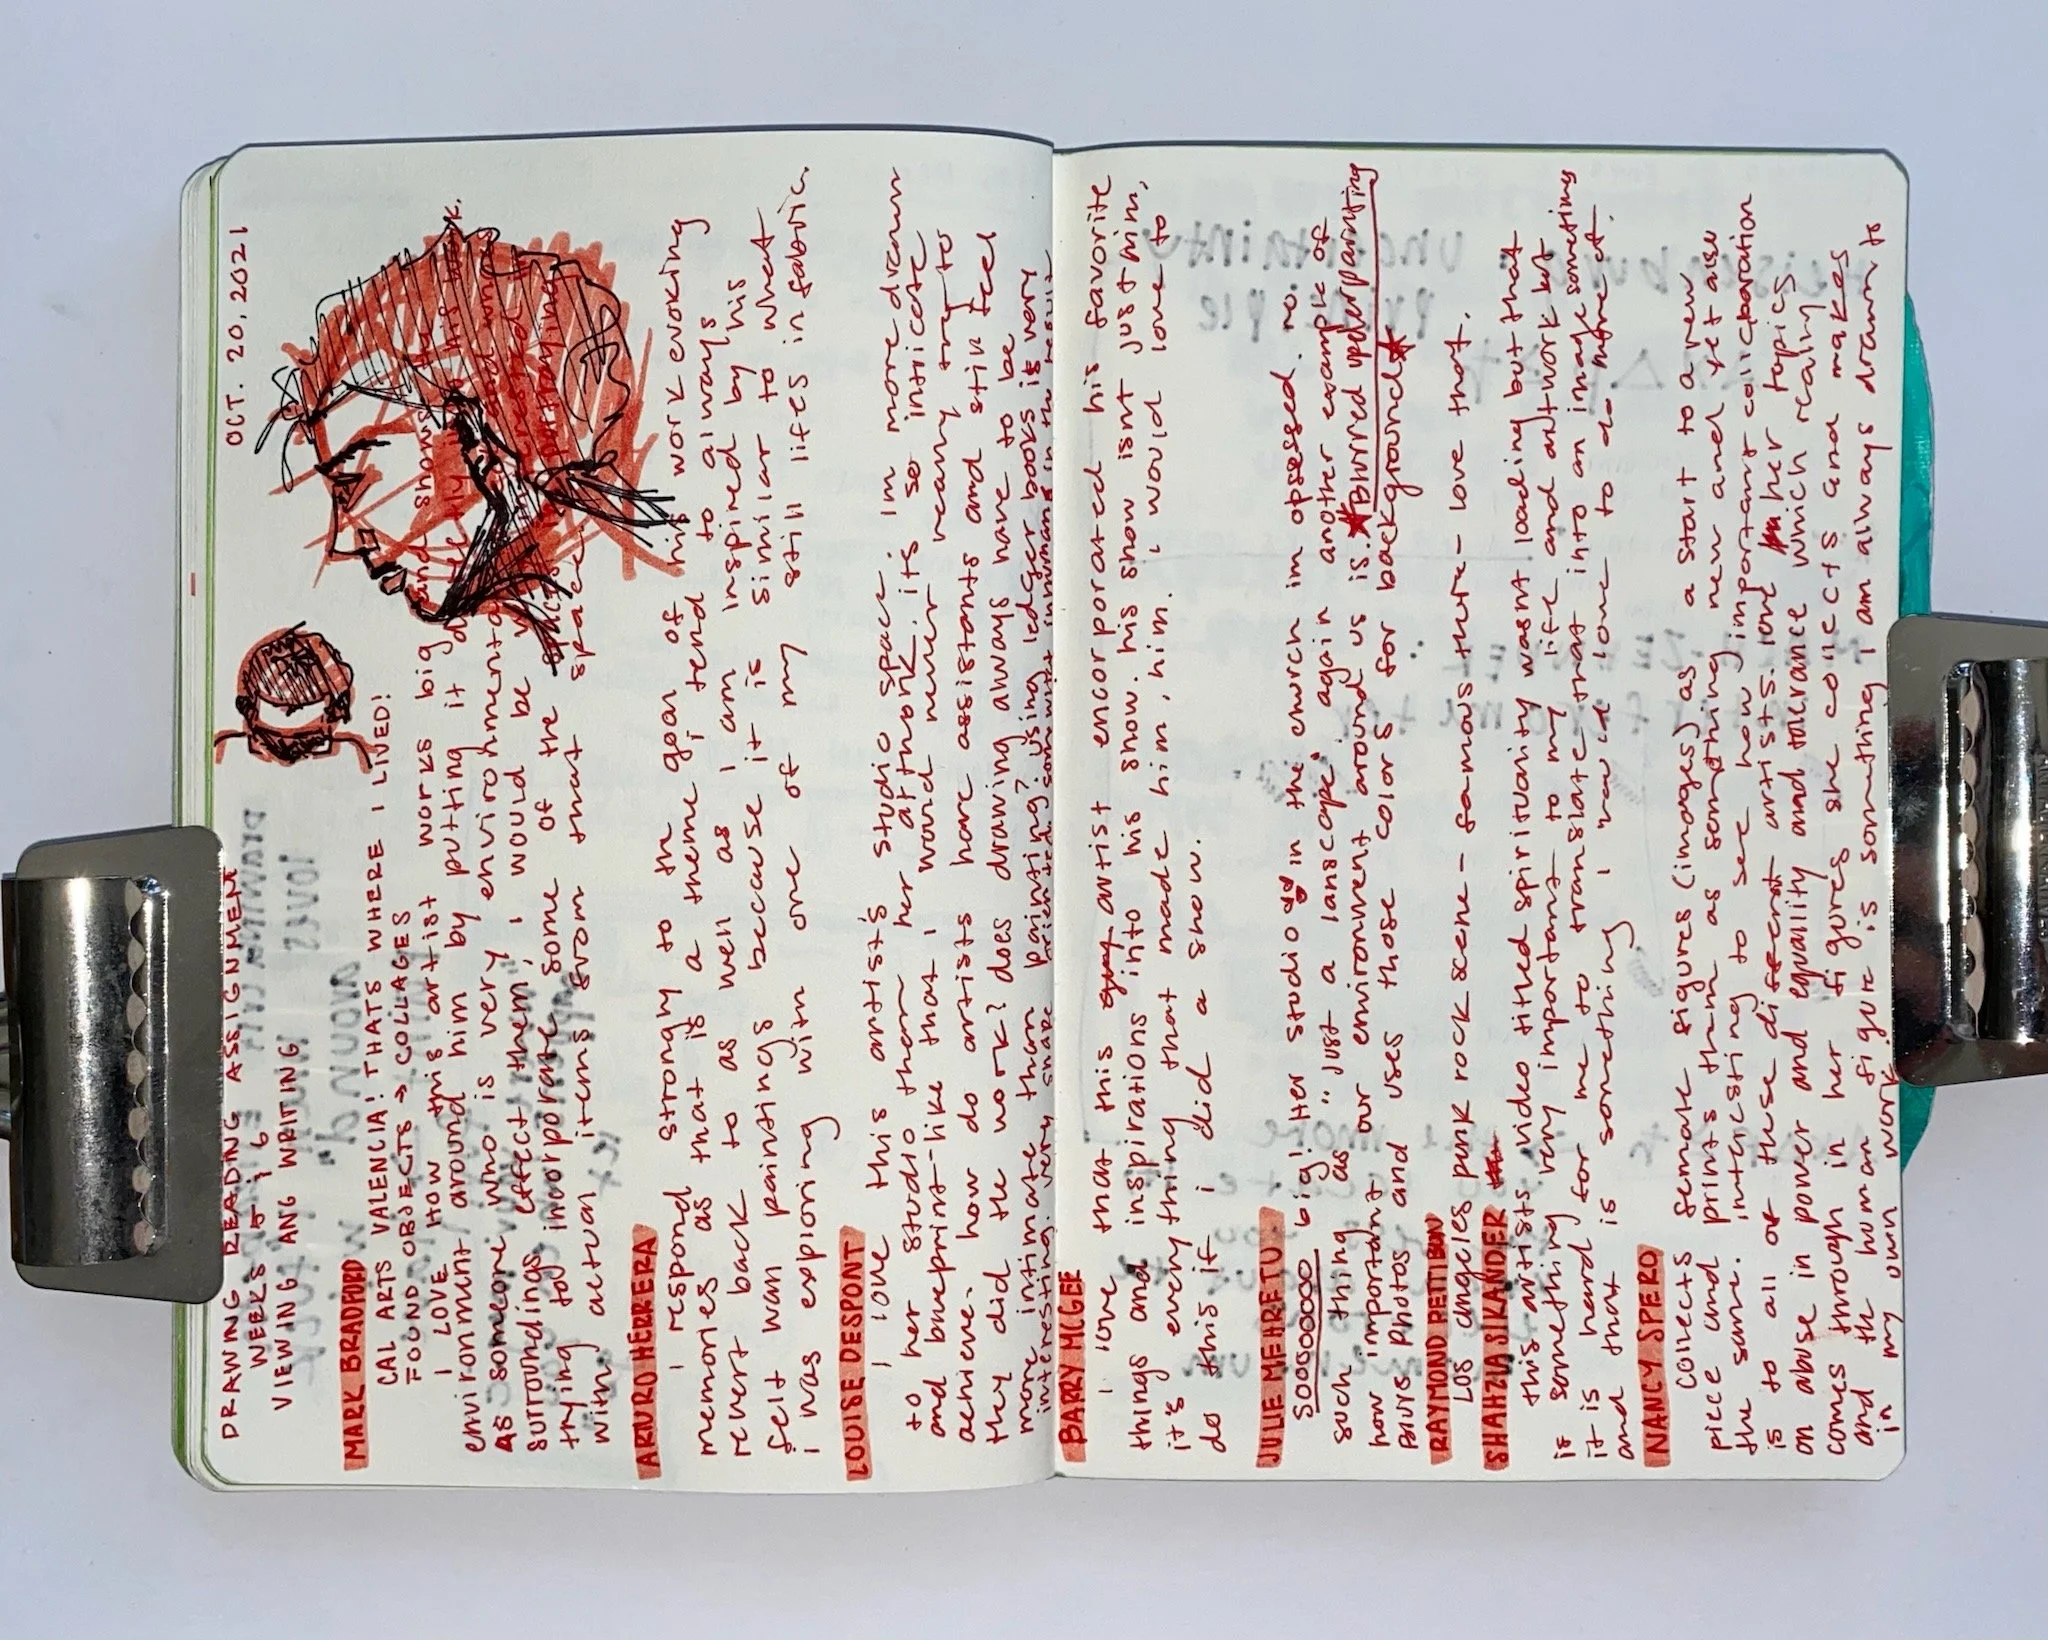 DRAWING READING ASSIGNMENT
OCT. 20, 2021
WEEKS 5 & 6
VIEWING AND WRITING
MARK BRADFORD
CAL ARTS VALENCIA! THATS WHERE I LIVED!
FOUND OBJECTS → COLLAGES
I LOVE HOW this artist works big and shows the
environment around him by putting it directly in his work.
AS someone who is very environmental and ones
surroundings effect them, I would be very interested in
trying to incorporate some of the space portraying
with actual items from that space.
ARTURO HERRERA
I respond strongly to the goal of his work evoking
memories as that is a theme i tend to always
revert back to as well as I am inspired by his
felt wall paintings because it is similar to what
i was exploring with one of my still lifes in fabric.
LOUISE DESPONT
I love this artist's studio space. im more drawn
to her studio than her artwork. its so intricate
and blueprint-like that I would never really try to
achieve. how do artists have assistants and still feel
they did the work? does drawing always have to be
more intimate than painting? using ledger books is very
interesting. very shape oriented, somewhat inhuman in the result
BARRY MCGEE
I love that this artist encorporated his favorite
things and inspirations into his show. his show isnt just him,
it's everything that made him, him. I would love to
do this if i did a show.
JULIE MEHRETU
soooooooo big! Her studio is in the church im obsessed. no
such thing as "just a lanscape." again another example of
how important our environment around us is. *Blurred up
Blurs photos and uses those colors for background*
RAYMOND PETTIBON
Los angeles punk rock scene - famous there - love that.
SHAHZIA SIKANDER
this artists video titled spirituality wasnt loading but that
is something very important to my life and artwork but
it is hard for me to translate that into an image sometimes
and that is something I would love to do more of.
NANCY SPERO
collects female figures (images) as a start to a new
piece and prints them as something new and yet also
the same. interesting to see how important collaboration
is to all of these different artists. love her topics
on abuse in power and equality and tolerance which really
comes through in her figures she collects and makes
and the human figure is something I am always drawn to
in my own work.